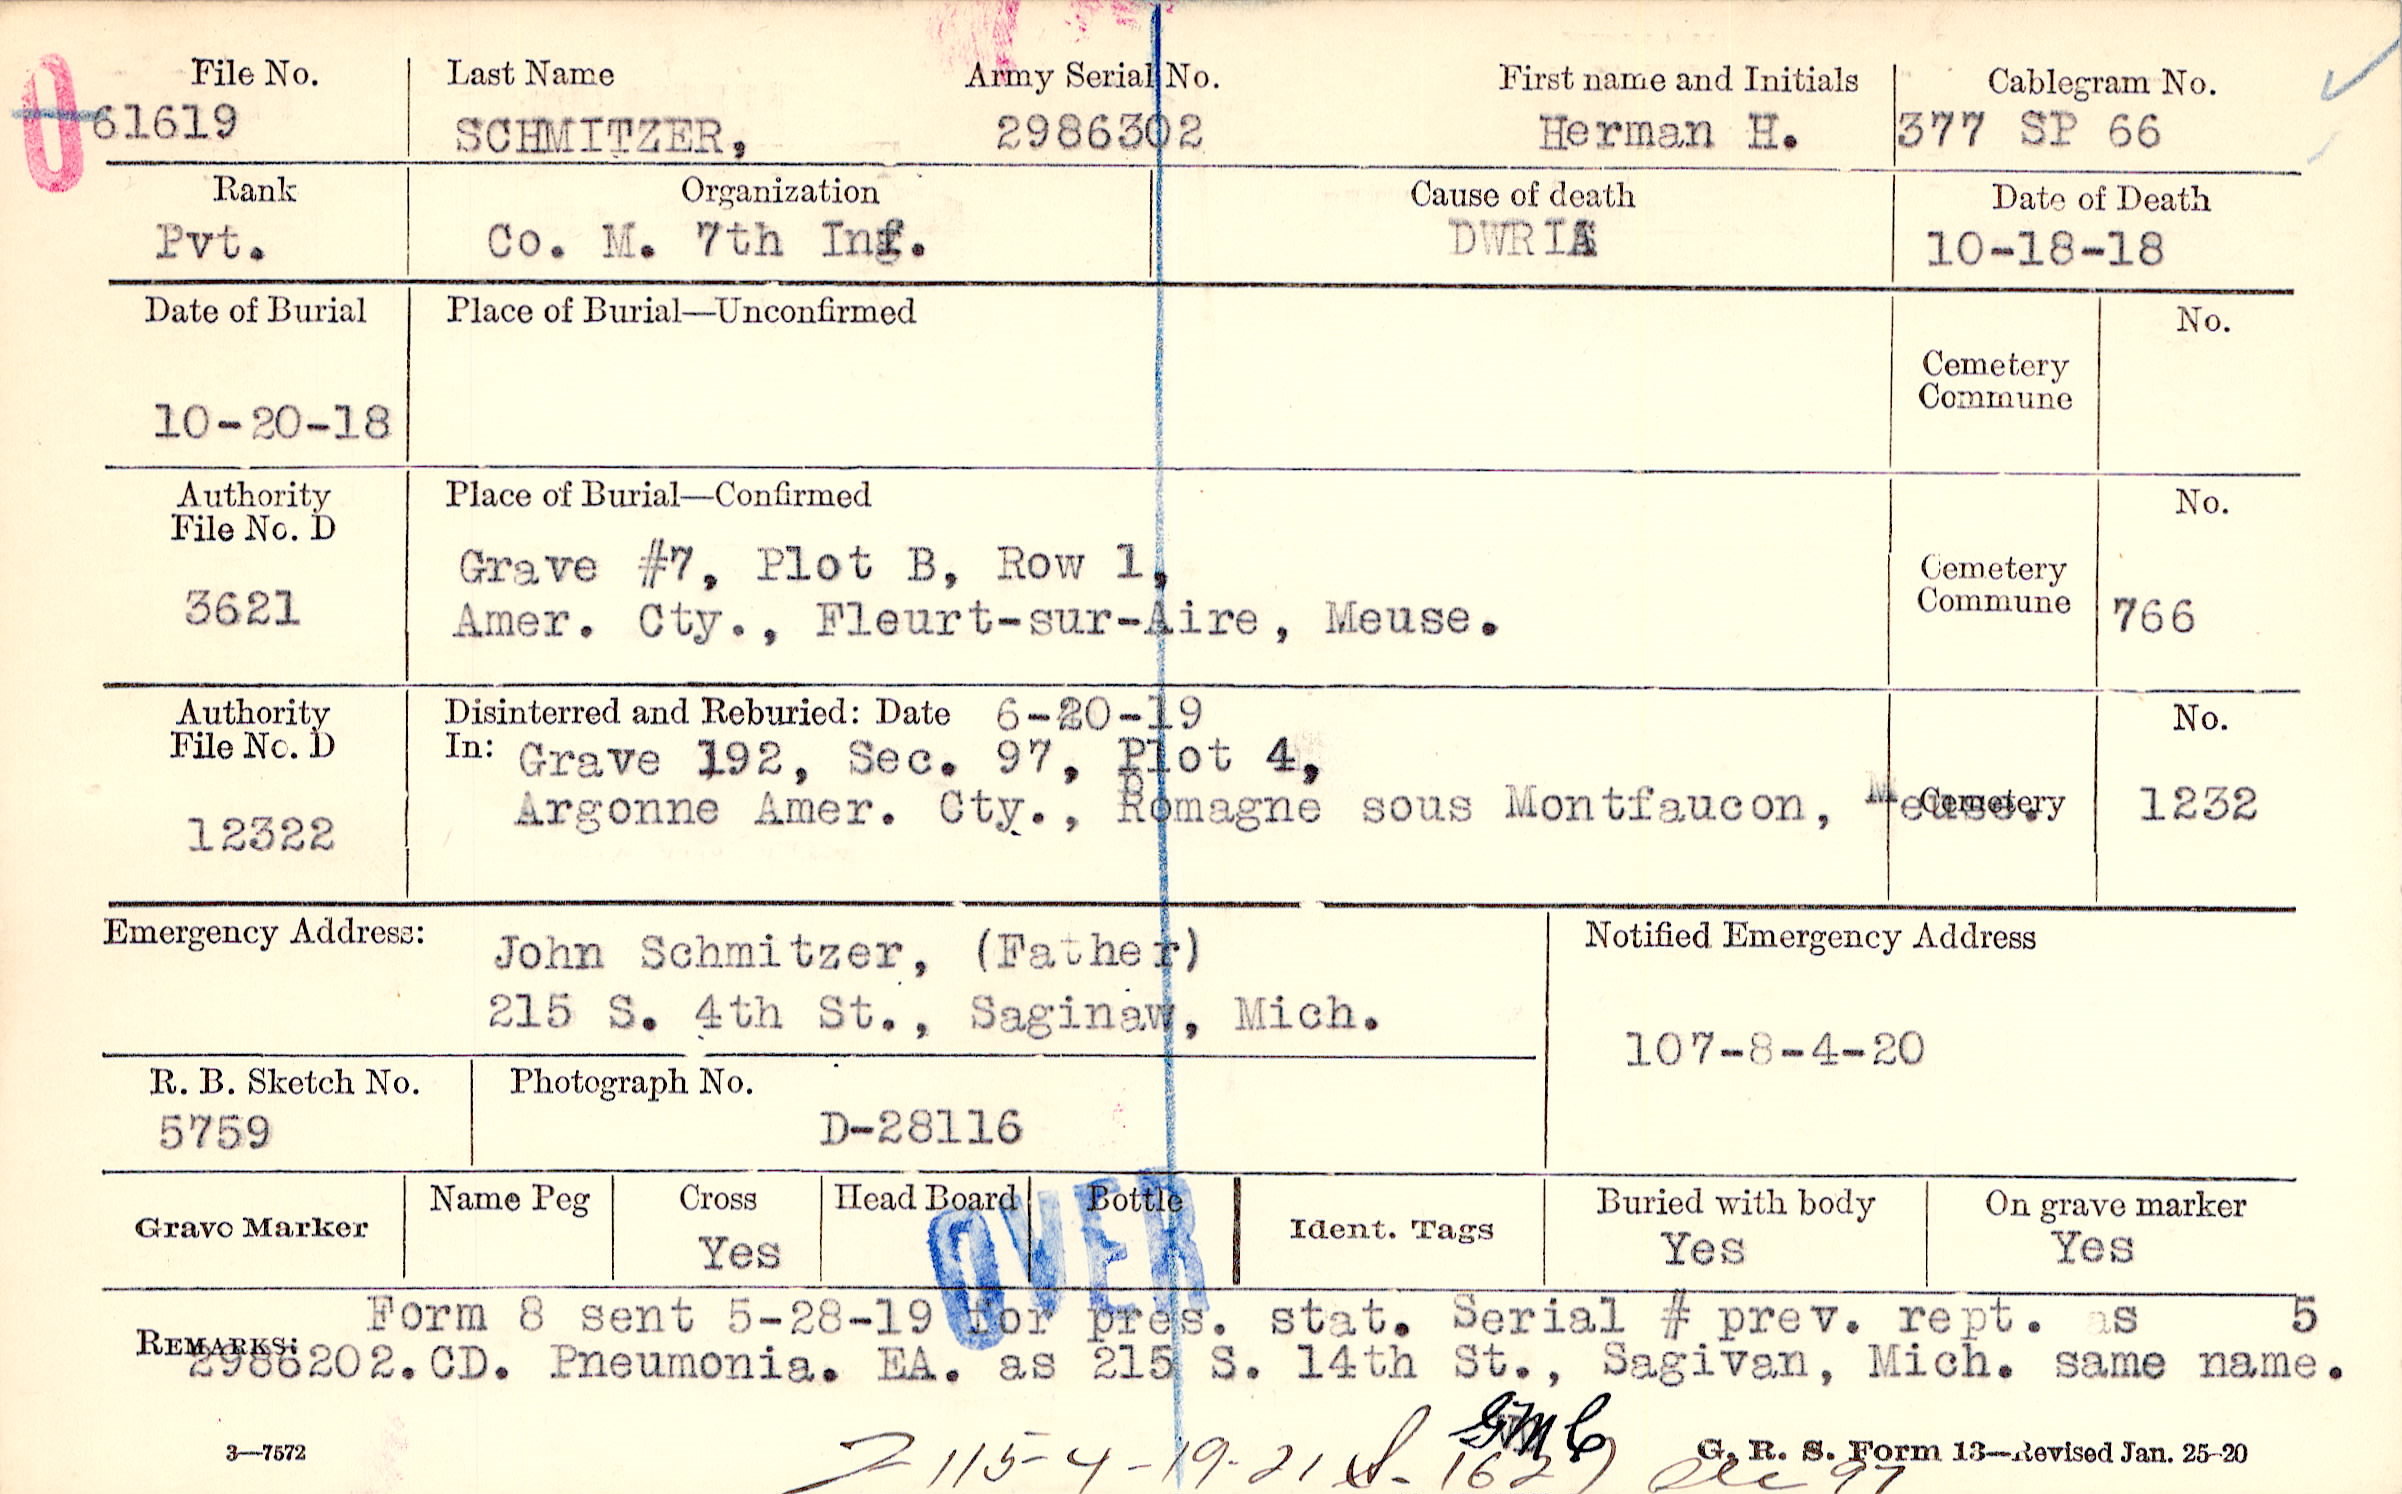 File No. Last Name Army Serial No. First name and Initials Cablegram No.
61619 SCHMITZER, 2986302 Herman H. 377 SP 66
Rank Organization Cause of death Date of Death
Pvt. Co. M. 7th Inf. DWRIA 10-18-18
Date of Burial Place of Burial—Unconfirmed No.
Cemetery
Commune
10-20-18
Authority Place of Burial—Confirmed No.
File No. D
Grave #7, Plot B, Row 1,
Cemetery
3621 Amer. Cty., Fleurt-sur-Aire, Meuse. Commune 766
Authority Disinterred and Reburied: Date 6-20-19 No.
File No. D In: Grave 192, Sec. 97, Plot 4,
Argonne Amer. Cty., Romagne sous Montfaucon, Meuse. Cemetery 1232
12322
Emergency Address: John Schmitzer, (Father) Notified Emergency Address
215 S. 4th St., Saginaw, Mich.
107-8-4-20
R. B. Sketch No. Photograph No.
5759 D-28116
Grave Marker Name Peg Cross Head Board Bottle Ident. Tags Buried with body On grave marker
Yes Yes Yes
OVER
Form 8 sent 5-28-19 for pres. stat. Serial # prev. rept. as 5
REMARKS: 2986202. CD. Pneumonia. EA. as 215 S. 14th St., Sagivan, Mich. same name.
GMC
3—7572 G. R. S. Form 13—Revised Jan. 25-20
115-4-19-21